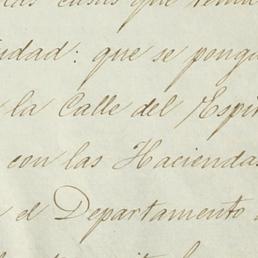 las casas que
udad: que se pong
la Calle del Espir
con las Haciendas
el Departamento